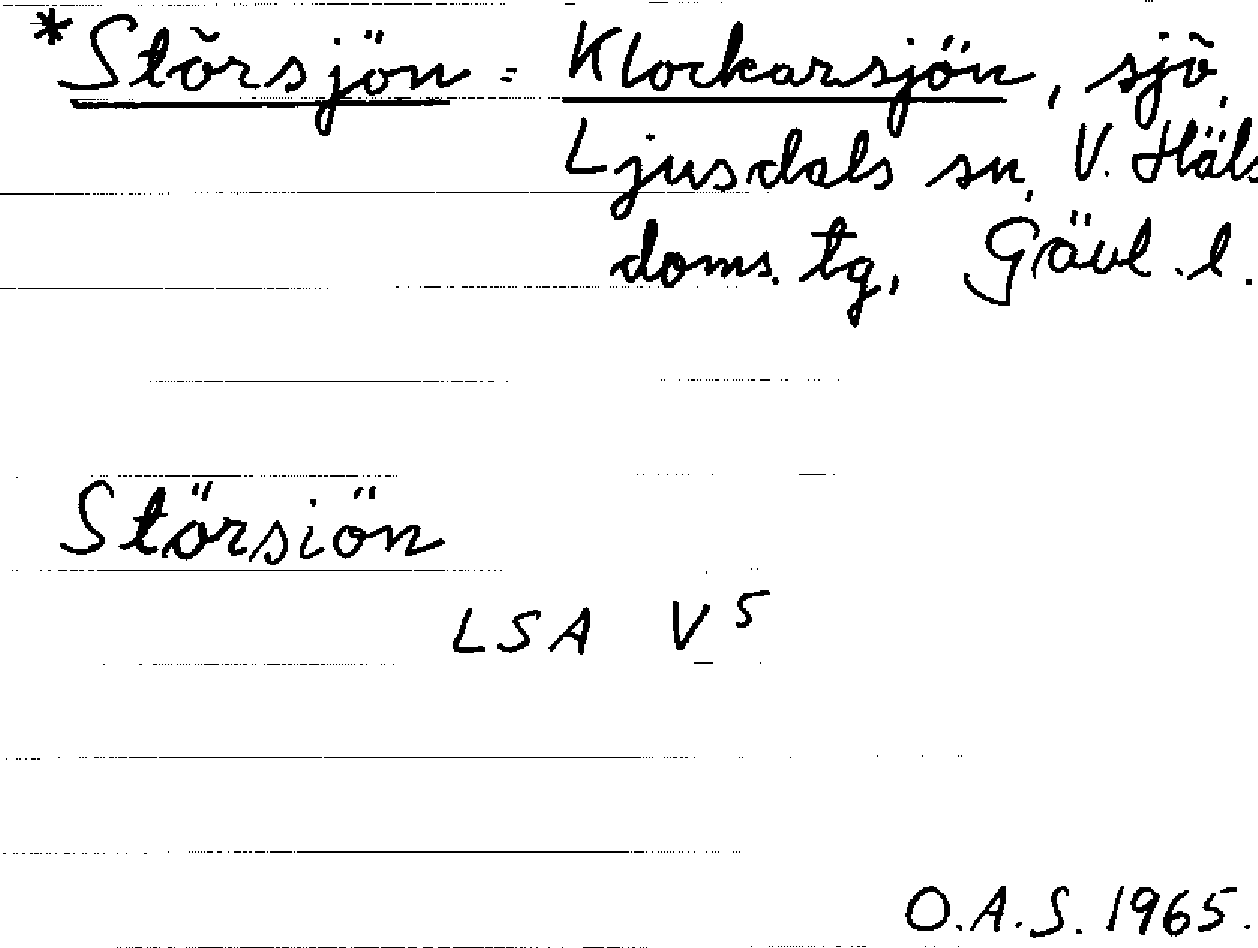 *Störsjön = Klockarsjön, sjö,
Ljusdals sn, V. Häls
doms. tg, Gävl. l.
Störsiön
LSA V 5
O.A.S. 1965.